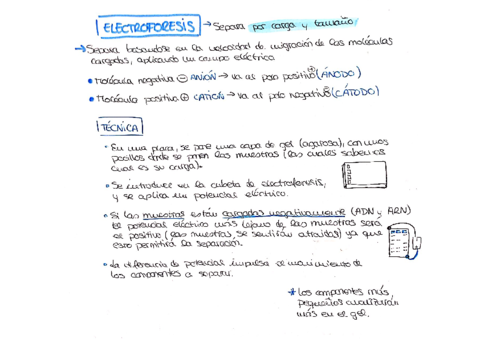 ELECTROFORESIS → Separa por carga y tamaño
→ Separa basándose en la velocidad de migración de las moléculas
cargadas, aplicando un campo eléctrico
• Molécula negativa ⊖ ANIÓN → va al polo positivo ⊕ (ÁNODO)
• Molécula positiva ⊕ CATIÓN → va al polo negativo ⊖ (CÁTODO)
TÉCNICA
• En una placa, se pone una capa de gel (agarosa), con unos
pocillos donde se ponen las muestras (las cuales sabemos
cual es su carga).
• Se introduce en la cubeta de electroforesis,
y se aplica un potencial eléctrico.
• Si las muestras están cargadas negativamente (ADN y ARN)
el potencial eléctrico más lejano de las muestras será
el positivo (las muestras se sentirán atraídas) ya que
esto permitirá la separación.
• La diferencia de potencial impulsa el movimiento de
los componentes a separar.
* Los componentes más
pequeños
más en el gel.